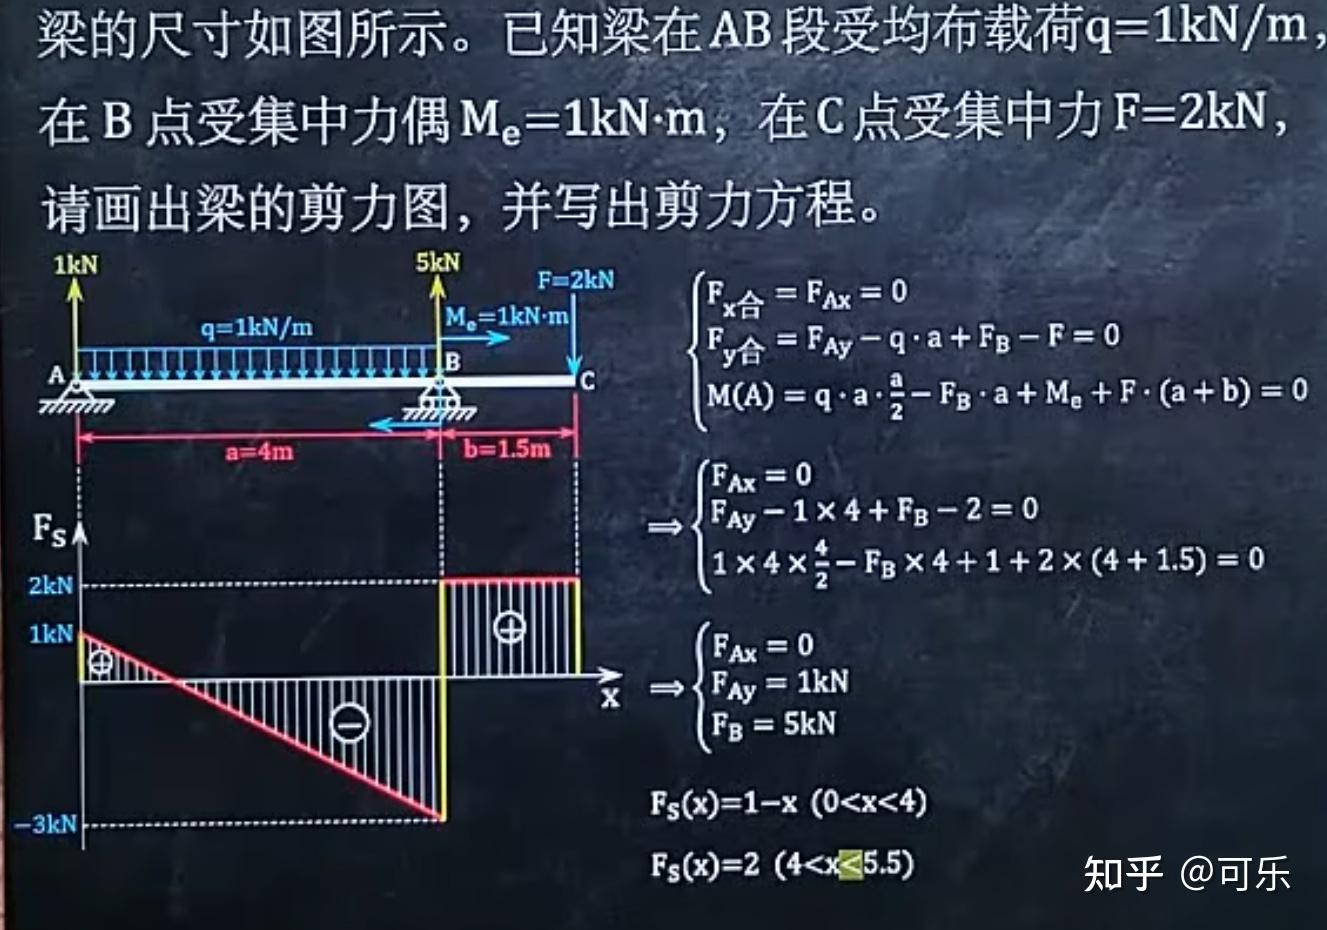 梁的尺寸如图所示。已知梁在AB段受均布载荷q=1kN/m,
在B点受集中力偶Mₑ=1kN·m，在C点受集中力F=2kN，
请画出梁的剪力图，并写出剪力方程。
1kN
5kN
F=2kN
q=1kN/m
Mₑ=1kN·m
A
B
C
a=4m
b=1.5m
Fs
2kN
1kN
⊕
⊕
⊖
x
−3kN
Fx合 = FAx = 0
Fy合 = FAy − q·a + FB − F = 0
M(A) = q·a·a/2 − FB·a + Me + F·(a+b) = 0
⟹ FAx = 0
FAy − 1×4 + FB − 2 = 0
1×4×4/2 − FB×4 + 1 + 2×(4+1.5) = 0
⟹ FAx = 0
FAy = 1kN
FB = 5kN
Fs(x)=1−x (0<x<4)
Fs(x)=2 (4<x<5.5)
知乎 @可乐